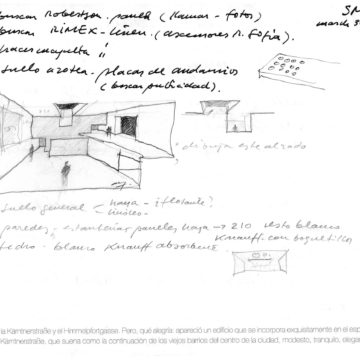 buscar Robertson. panel (llamar - fotos)
buscar RIMEX - linen. (ascensores R. Sofía).
hacer maqueta "
suelo azotea. placas de andamios
(buscar publicidad).
"dibujar este alzado
suelo general - haya - flotante
paredes - estanterías paneles haya → 210 resto blanco
techo - blanco Knauff absorbente Knauff. con
la Kärntnerstraße y el Himmelpfortgasse. Pero, qué alegría: apareció un edificio que se incorpora exquisitamente en el esp
Kärntnerstraße, que suena como la continuación de los viejos barrios del centro de la ciudad, modesto, tranquilo, elega